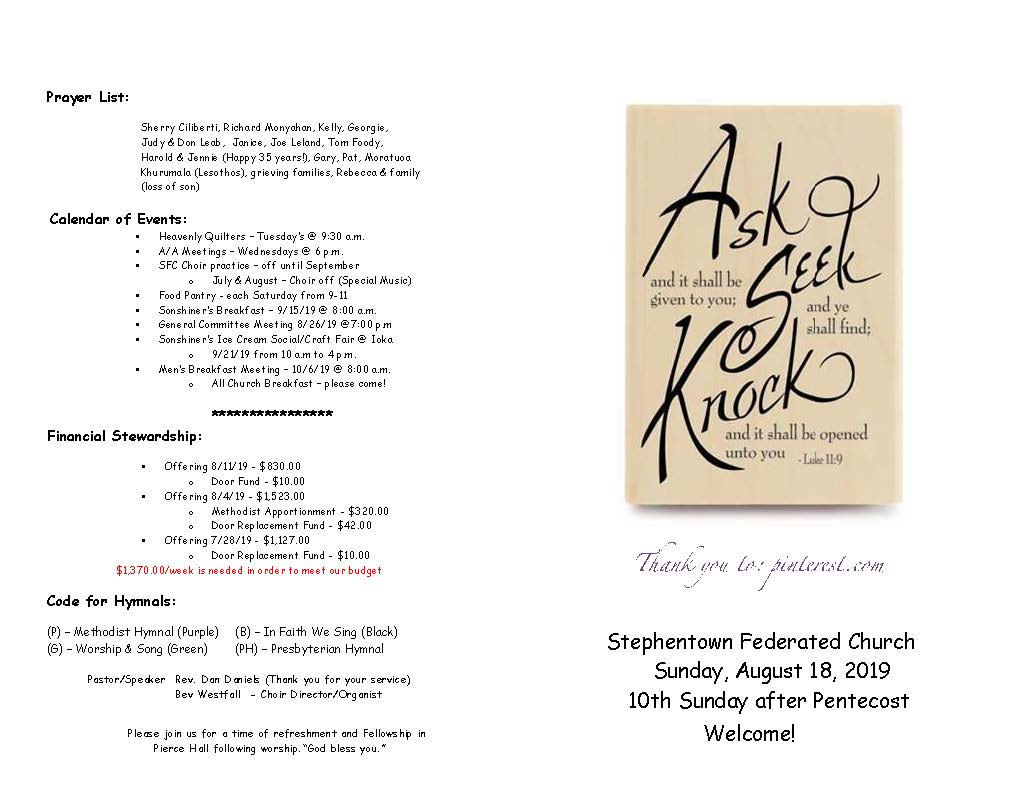 Prayer List:
Sherry Ciliberti, Richard Monyahan, Kelly, Georgie,
Judy & Don Leab, Janice, Joe Leland, Tom Foody,
Harold & Jennie (Happy 35 years!), Gary, Pat, Moratuoa
Khurumala (Lesothos), grieving families, Rebecca & family
(loss of son)
Calendar of Events:
• Heavenly Quilters – Tuesday's @ 9:30 a.m.
• A/A Meetings – Wednesdays @ 6 p.m.
• SFC Choir practice – off until September
o July & August – Choir off (Special Music)
• Food Pantry - each Saturday from 9-11
• Sonshiner's Breakfast – 9/15/19 @ 8:00 a.m.
• General Committee Meeting 8/26/19 @7:00 p.m
• Sonshiner's Ice Cream Social/Craft Fair @ Ioka
o 9/21/19 from 10 a.m to 4 p.m.
• Men's Breakfast Meeting – 10/6/19 @ 8:00 a.m.
o All Church Breakfast – please come!
****************
Financial Stewardship:
• Offering 8/11/19 - $830.00
o Door Fund - $10.00
• Offering 8/4/19 - $1,523.00
o Methodist Apportionment - $320.00
o Door Replacement Fund - $42.00
• Offering 7/28/19 - $1,127.00
o Door Replacement Fund - $10.00
$1,370.00/week is needed in order to meet our budget
Code for Hymnals:
(P) – Methodist Hymnal (Purple) (B) – In Faith We Sing (Black)
(G) – Worship & Song (Green) (PH) – Presbyterian Hymnal
Pastor/Speaker Rev. Dan Daniels (Thank you for your service)
Bev Westfall – Choir Director/Organist
Please join us for a time of refreshment and Fellowship in
Pierce Hall following worship. "God bless you."
Ask
and it shall be
given to you;
Seek
and ye
shall find;
Knock
and it shall be opened
unto you - Luke 11:9
Thank you to: pinterest.com
Stephentown Federated Church
Sunday, August 18, 2019
10th Sunday after Pentecost
Welcome!